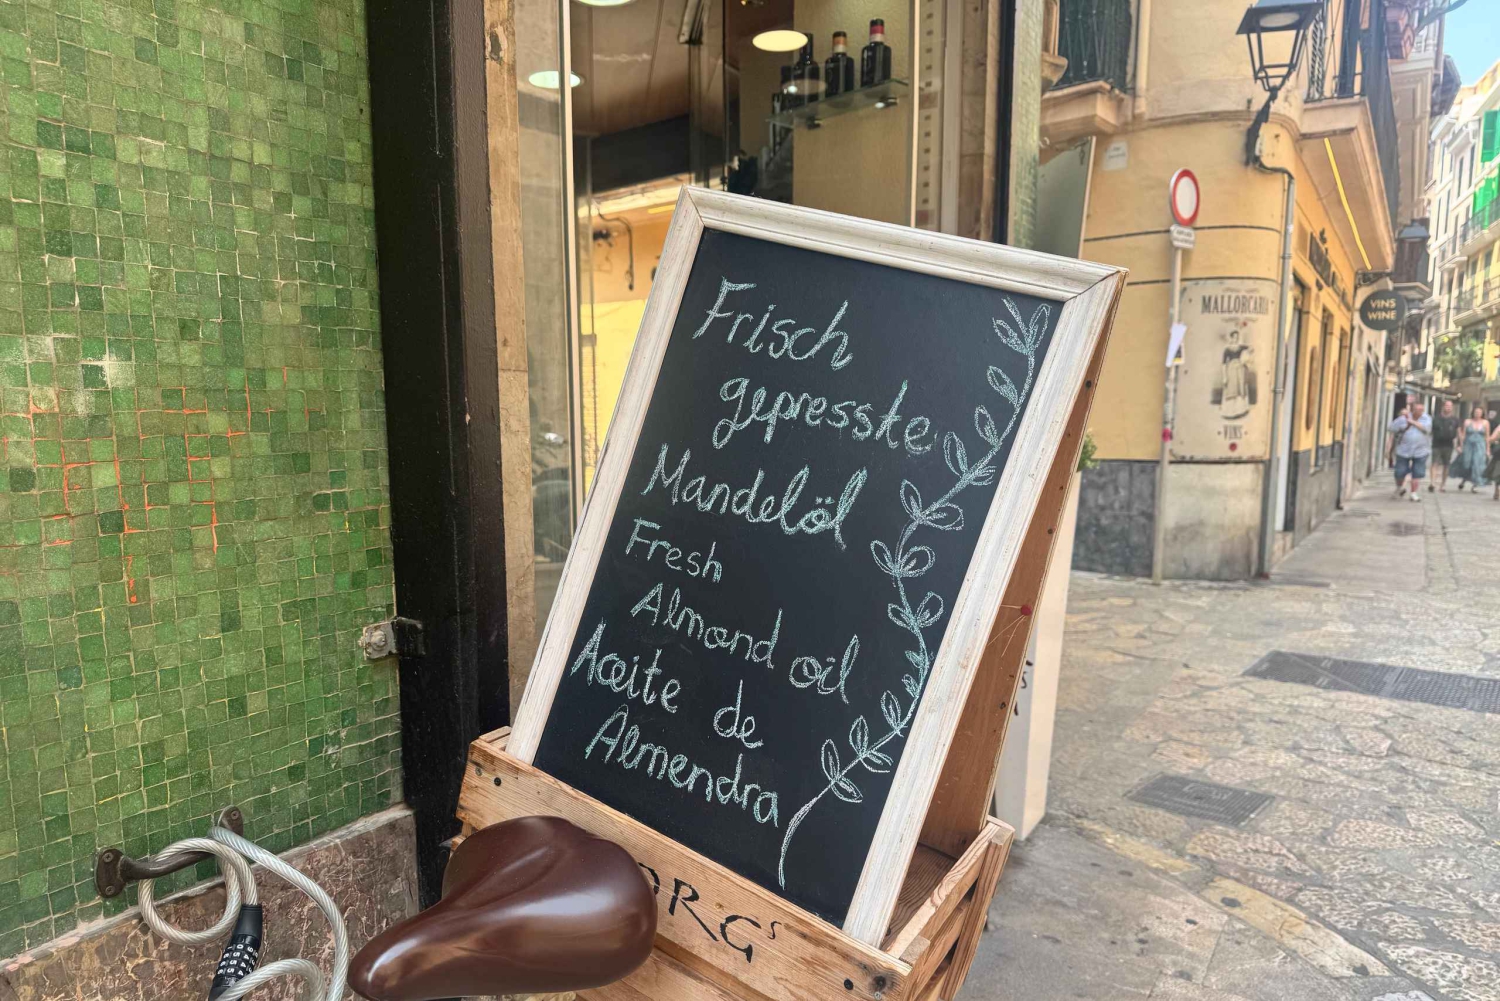 Frisch
gepresste
Mandelöl
Fresh
Almond oil
Aceite de
Almendra
ORGs
MALLORCARIA
VINS
VINS
WINE